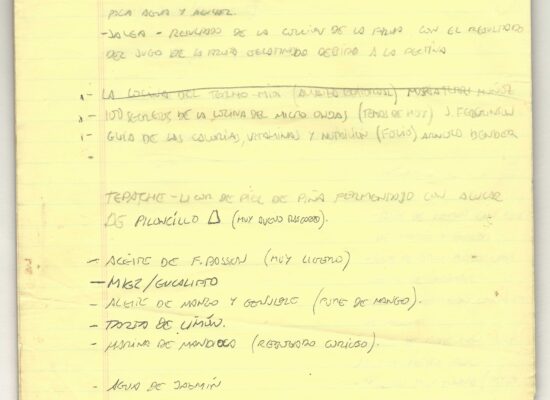 POCA AGUA Y AZUCAR.
- JALEA - RESULTADO DE LA COCCIÓN DE LA FRUTA CON EL RESULTADO
DEL JUGO DE LA FRUTA GELATINADO DEBIDO A LA PECTINA
1- LA COCINA DEL TERMO-MIX
2- 100 SECRETOS DE LA COCINA DEL MICRO ONDAS (TEMAS DE HOY) J. FERGUNSON
3- GUÍA DE LAS CALORÍAS, VITAMINAS Y NUTRICIÓN (FOLIO) ARNOLD BENDER
-
TEPACHE - LICOR DE PIEL DE PIÑA FERMENTADO CON AZUCAR
DE PILONCILLO (MUY BUENO
- ACEITE DE (MUY LIGERO)
- MIEL/EUCALIPTO
- ACEITE DE MANGO Y GENGIBRE (PURE DE MANGO).
- TARTA DE LIMÓN.
- HARINA DE MANDIOCA (RESULTADO CURIOSO).
- AGUA DE JAZMÍN